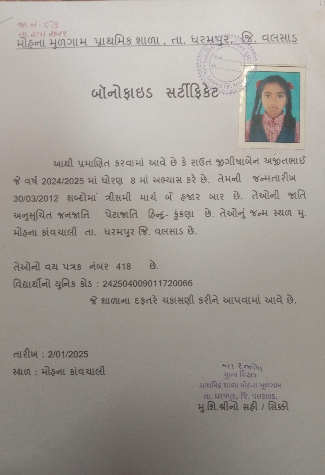 મોહના મુળગામ પ્રાથમિક શાળા , તા. ધરમપુર, જિ. વલસાડ
બોનોફાઇડ સર્ટીફિકેટ
આથી પ્રમાણિત કરવામાં આવે છે કે રાઉત જીગીષાબેન અજીતભાઈ
જે વર્ષ 2024/2025 માં ધોરણ 8 માં અભ્યાસ કરે છે. તેમની જન્મતારીખ
30/03/2012 શબ્દોમાં ત્રીસમી માર્ચ બે હજાર બાર છે. તેઓની જાતિ
અનુસૂચિત જનજાતિ પેટાજાતિ હિન્દુ- કુંકણા છે. તેઓનું જન્મ સ્થળ મુ.
મોહના કાંવચાલી તા. ધરમપુર જિ. વલસાડ છે.
તેઓનો વય પત્રક નંબર 418 છે.
વિદ્યાર્થીનો યુનિક કોડ : 242504009011720066
જે શાળાના દફતરે ચકાસણી કરીને આપવામાં આવે છે.
તારીખ : 2/01/2025
સ્થળ : મોહના કાંવચાલી
મુખ્ય શિક્ષક
પ્રાથમિક શાળા મોહના મુળગામ
તા. ધરમપુર, જિ. વલસાડ.
મુ.શિ.શ્રીનો સહી / સિક્કો